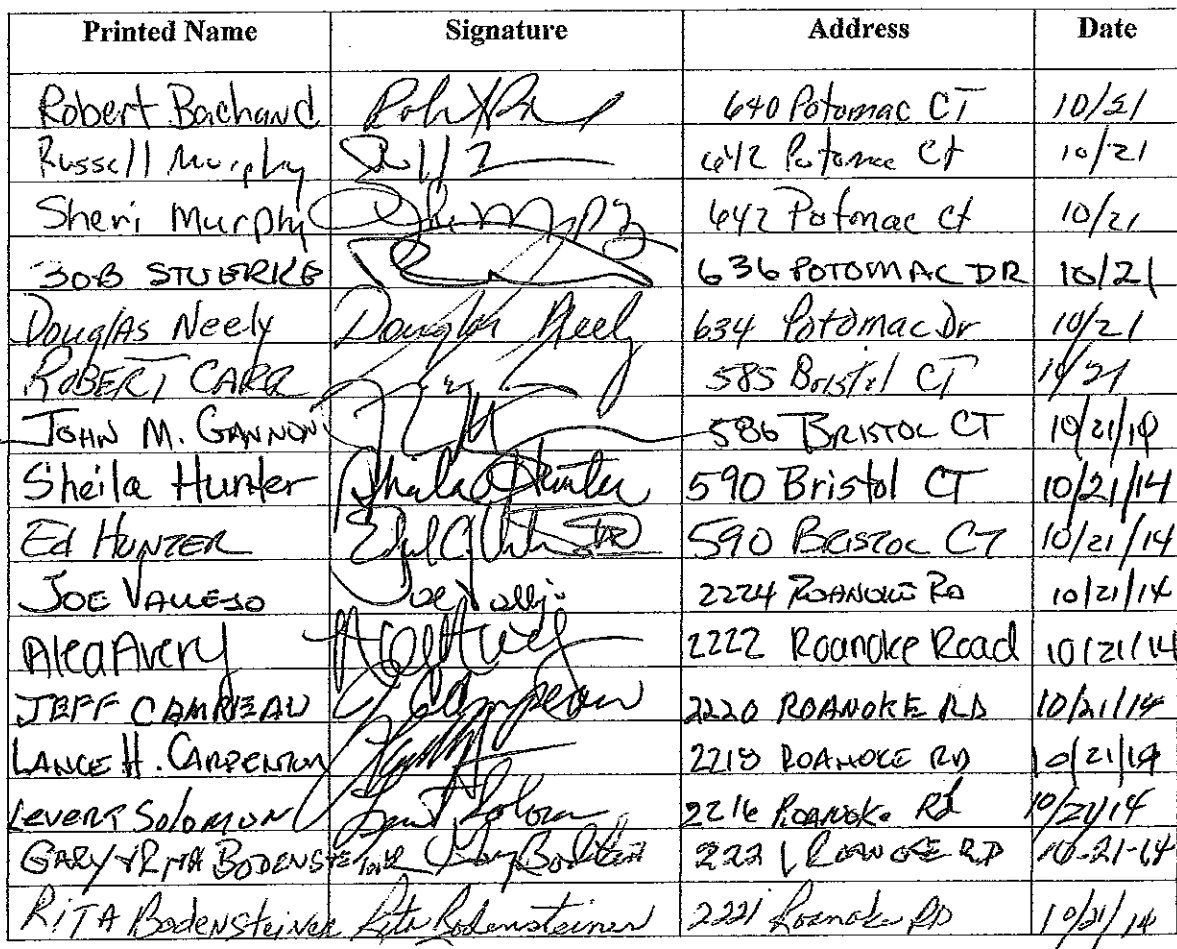 Printed Name Signature Address Date
Robert Bachand 640 Potomac CT 10/21
Russell Murphy 642 Potomac Ct 10/21
Sheri Murphy 642 Potomac Ct 10/21
BOB STUERKE 636 POTOMAC DR 10/21
Douglas Neely Douglas Neely 634 Potomac Dr 10/21
ROBERT CARR 585 Bristol CT 10/21
JOHN M. GANNON 586 BRISTOL CT 10/21/14
Sheila Hunter Sheila Hunter 590 Bristol CT 10/21/14
Ed HUNTER 590 BRISTOL CT 10/21/14
JOE VALLEJO Joe Vallejo 2224 ROANOKE RD 10/21/14
Alea Avery 2222 Roanoke Road 10/21/14
JEFF CAMPEAU J Campeau 2220 ROANOKE RD 10/21/14
LANCE H. CARPENTER 2218 ROANOKE RD 10/21/14
LEVERT SOLOMON 2216 ROANOKE Rd 10/21/14
GARY & RITA BODENSTEINER 2221 ROANOKE RD 10-21-14
RITA Bodensteiner Rita Bodensteiner 2221 Roanoke RD 10/21/14